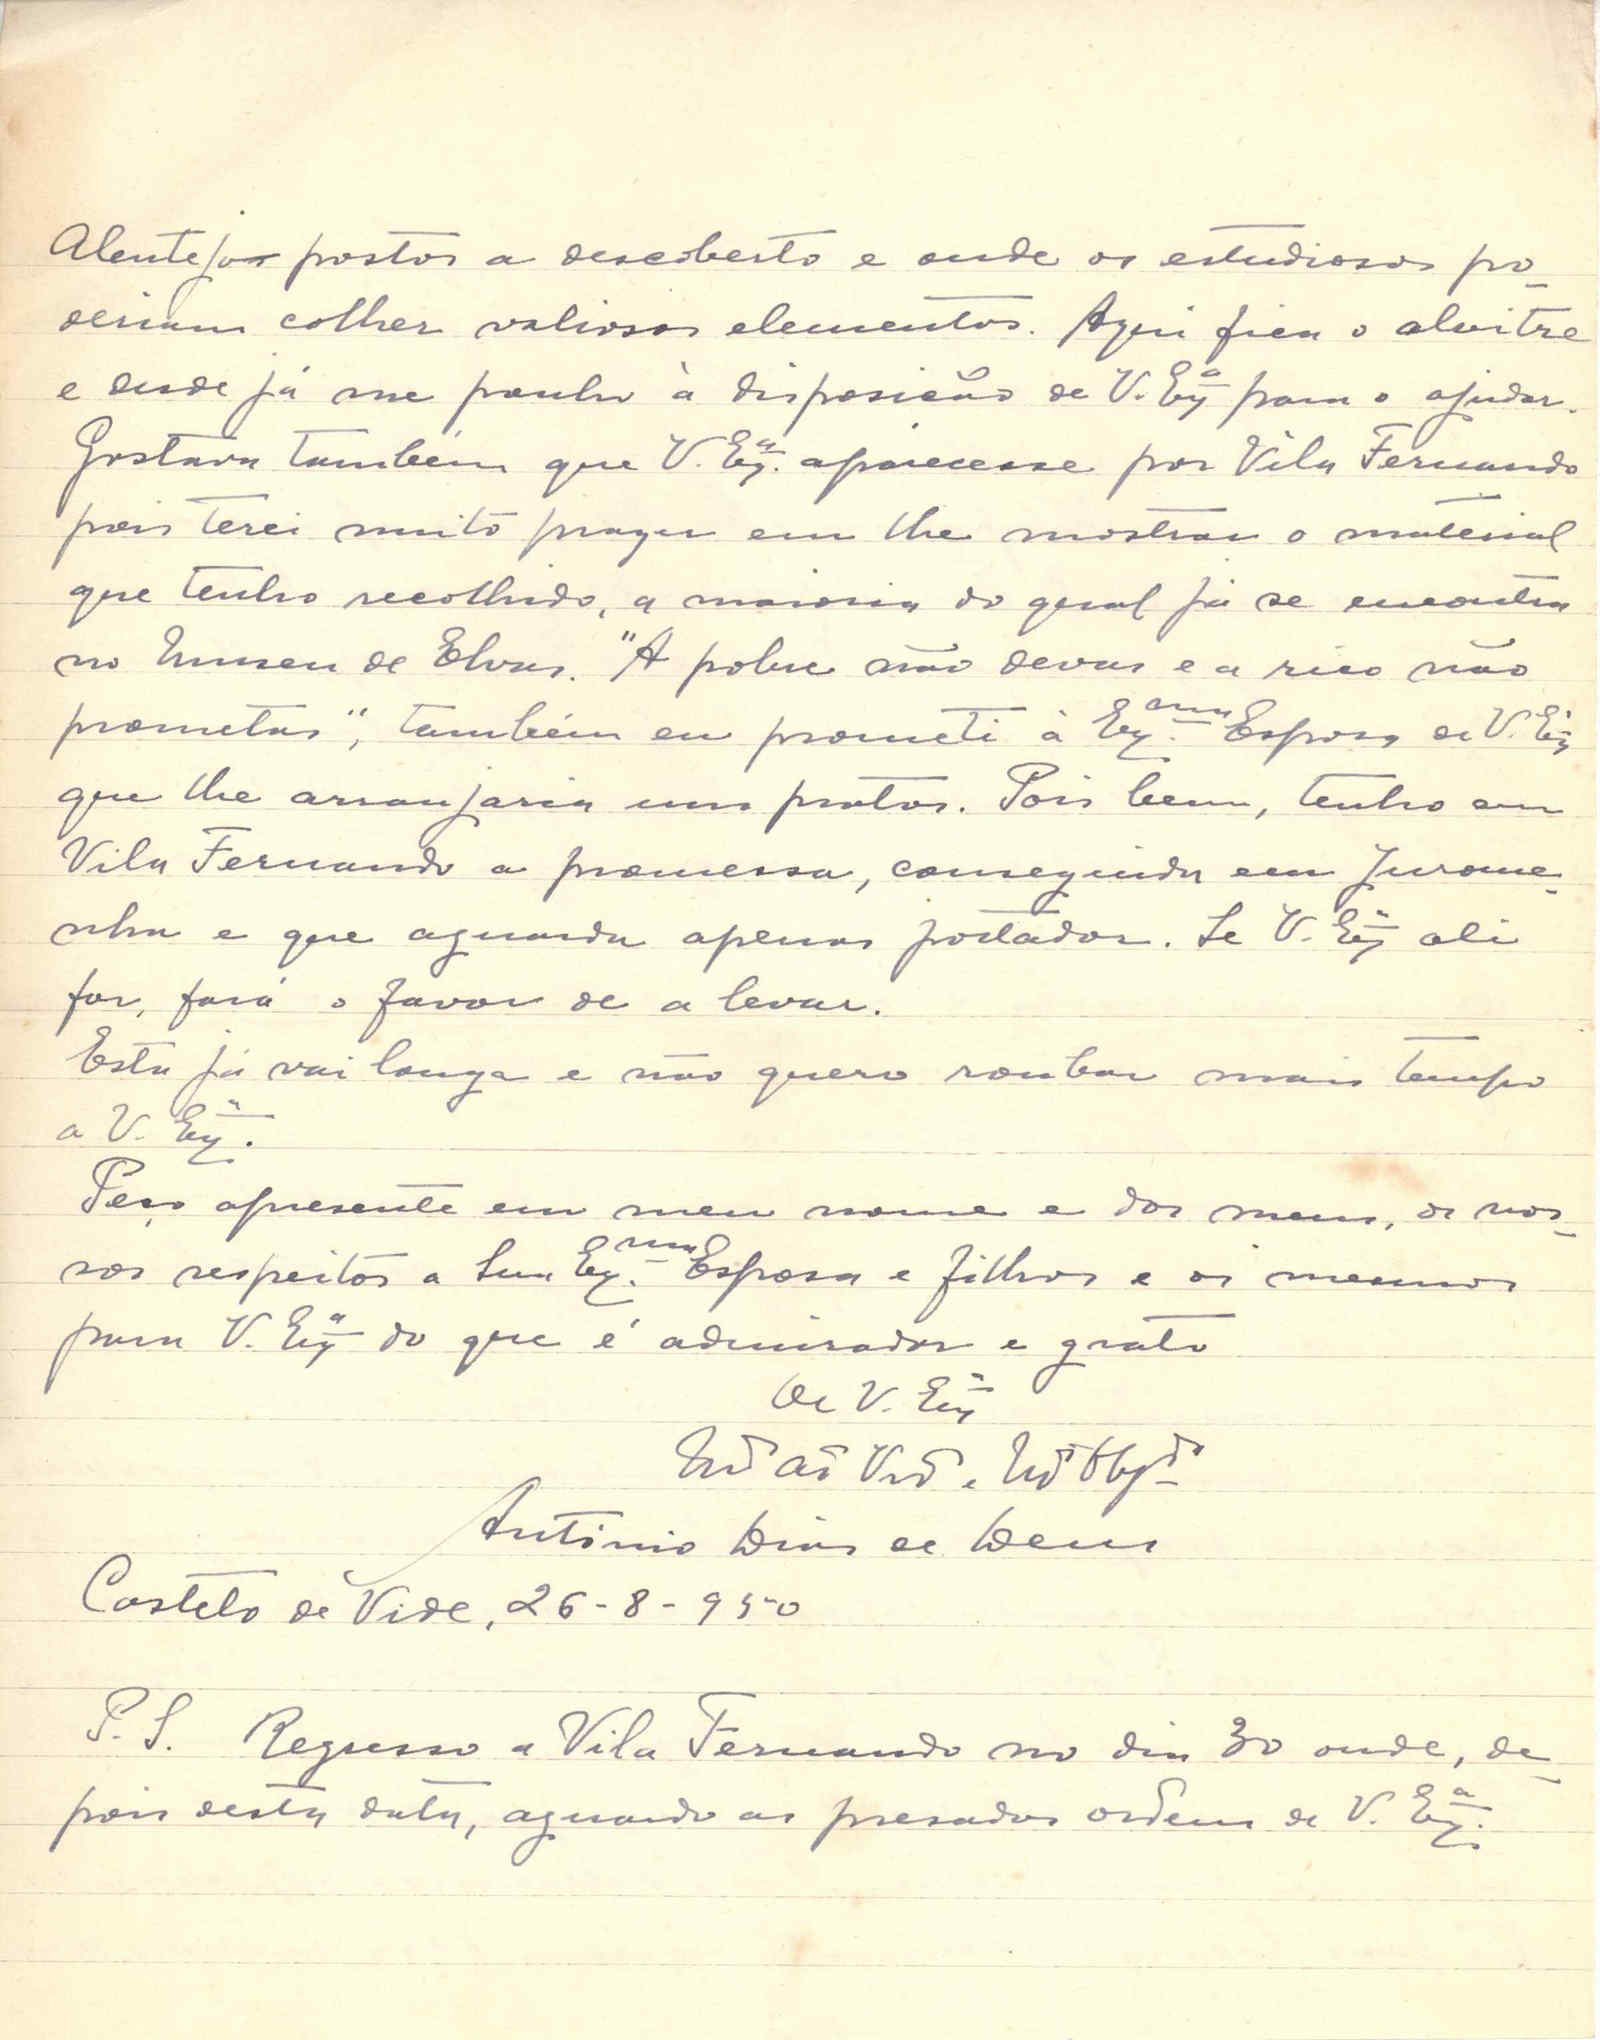 Alentejo postos a descoberto e onde os estudiosos po-
deriam colher valiosos elementos. Aqui fica o alvitre
e desde já me ponho à disposição de V. Exª para o ajudar.
Gostava também que V. Exª. aparecesse por Vila Fernando
pois terei muito prazer em lhe mostrar o material
que tenho recolhido, a maioria do qual já se encontra
no Museu de Elvas. "A pobre não devas e a rico não
prometas", também eu prometi à Exma. Esposa de V. Exª
que lhe arranjaria uns pratos. Pois bem, tenho em
Vila Fernando a promessa, conseguida em Jurome-
nha e que aguarda apenas portador. Se V. Exª ali
for, fará o favor de a levar.
Esta já vai longa e não quero roubar mais tempo
a V. Exª.
Peço apresente em meu nome e dos meus, os nos-
sos respeitos a Sua Exma. Esposa e filhos e os mesmos
para V. Exª do que é admirador e grato
De V. Exª
Mto Ato Vdor e Mto Obgdo
António Dias de Deus
Castelo de Vide, 26-8-950
P. S. Regresso a Vila Fernando no dia 30 onde, de-
pois desta data, aguardo as presadas ordens de V. Exª.